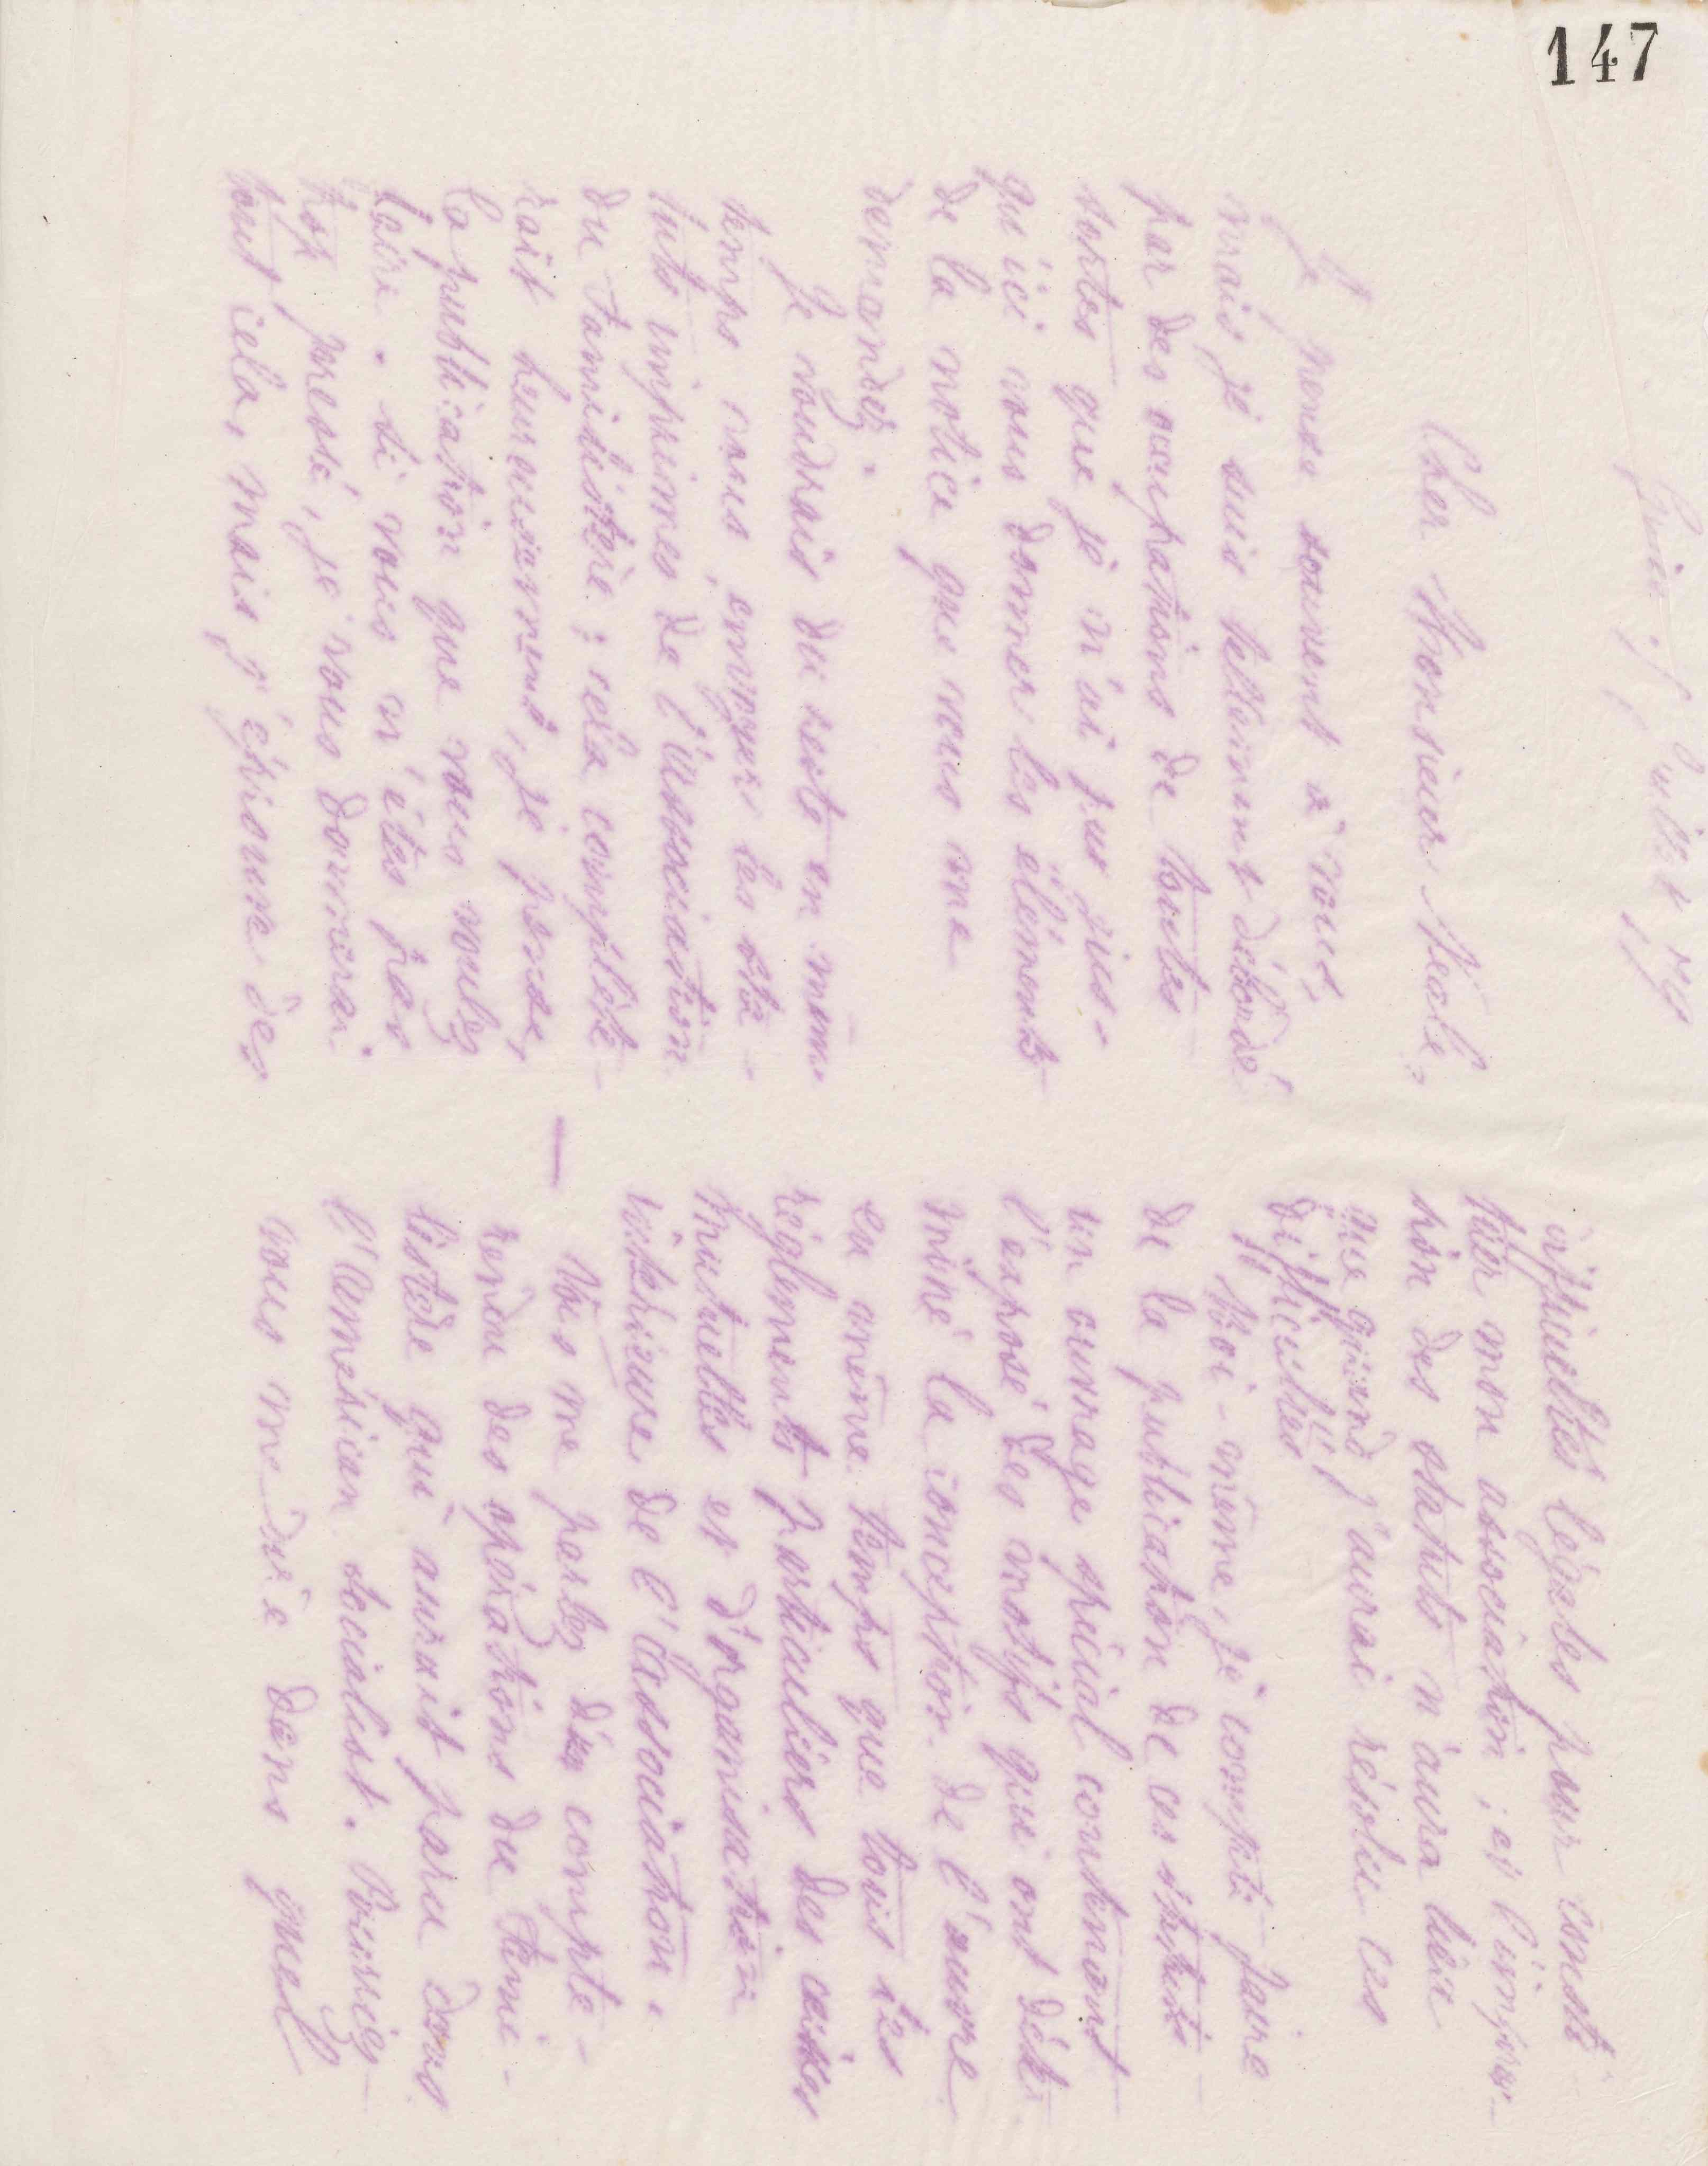 147
Guise, Juillet 79
Cher Monsieur Neale,
Je pense souvent à vous,
mais je suis tellement débordé
par des occupations de toutes
sortes que je n'ai pu jus-
qu'ici vous donner les éléments
de la notice que vous me
demandez.
Je voudrais du reste en même
temps vous envoyer les sta-
tuts imprimés de l'association
du Familistère ; cela complète-
rait heureusement, je pense,
la publication que vous voulez
faire. Si vous n'êtes pas
trop pressé, je vous donnerai
tout cela, mais j'éprouve des
difficultés légales pour consti-
tuer mon association ; et l'impres-
sion des statuts n'aura lieu
que quand j'aurai résolu ces
difficultés
Moi-même, je compte faire
de la publication de ces statuts
un ouvrage spécial contenant
l'exposé des motifs que ont déter-
miné la conception de l'œuvre
en même temps que tous les
règlements particuliers des caisses
mutuelles et d'organisation
intérieure de l'Association.
Vous me parlez d'un compte-
rendu des opérations du Fami-
listère qui aurait paru dans
l'American Socialist. Puissiez-
vous me dire dans quel